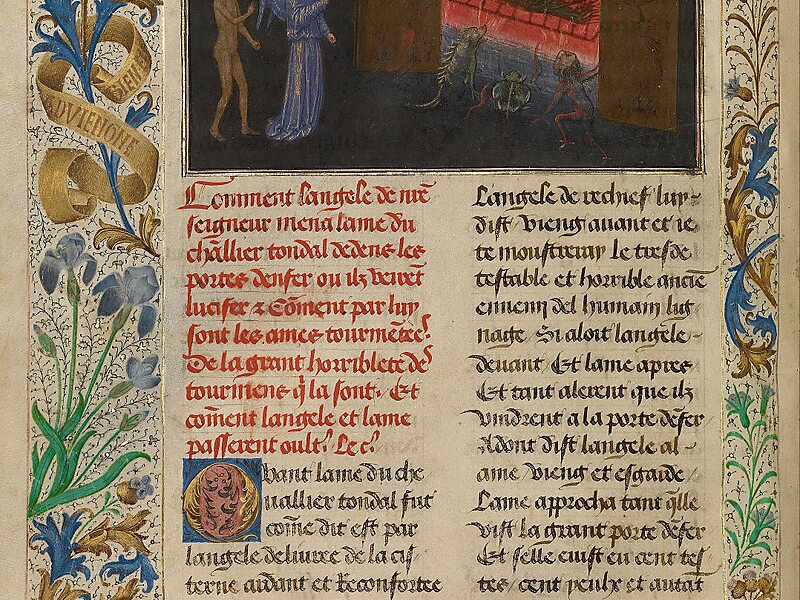 BIEN
ADVIEHGNE
Comment langele de nr̃e
seigneur mena lame du
chãllier tondal dedens les
portes denfer ou ilz veirẽt
lucifer ⁊ Cõment par luy
sont les ames tourmẽtees.
De la grant horriblete des
tourmens q̃ la sont. Et
cõment langele et lame
passerent oult̾. Le c̾
Quant lame du che
uallier tondal fut
cõme dit est par
langele deliuree de la cis
terne aidant et Reconfortee
Langele de rechief luy
dist vieng auant et ie
te moustreray le tresde
testable et horrible anciẽ
ennemi del humain lig
nage Si aloit langele
deuant Et lame apres
Et tant alerent que ilz
vindrent a la porte dẽfer
Adont dist langele al
ame vieng et esgarde
Lame approcha tant q̃lle
vist la grant porte dẽfer
Et selle euist eu cent tes
tes cent yeulx et autãt